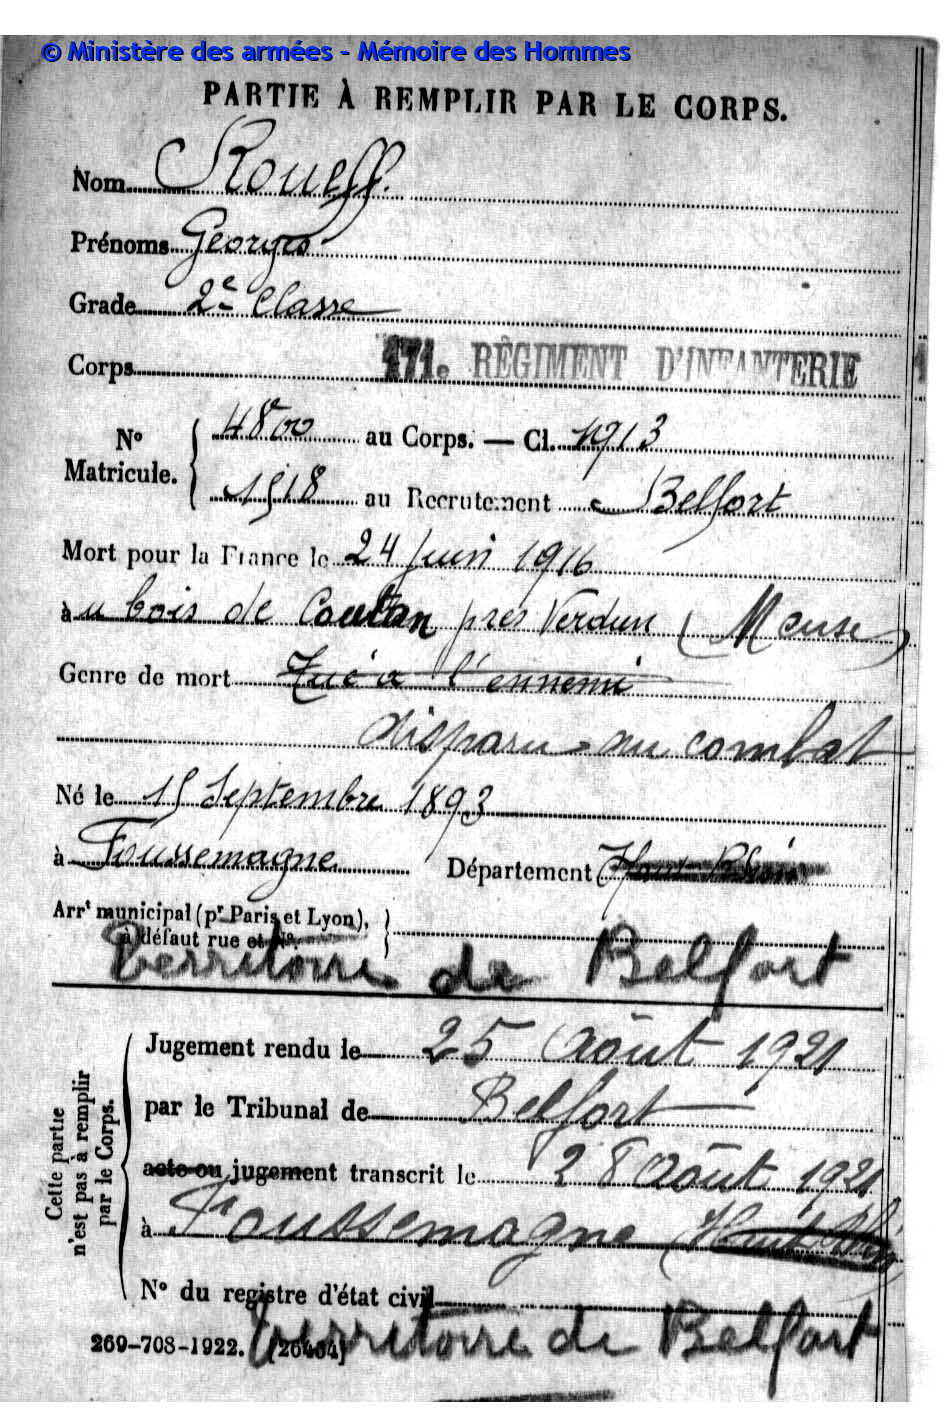 © Ministère des armées - Mémoire des Hommes
PARTIE À REMPLIR PAR LE CORPS.
Nom Roueff.
Prénoms Georges
Grade 2e Classe
Corps 171e RÉGIMENT D'INFANTERIE
No Matricule. 4800 au Corps. — Cl. 1913
1518 au Recrutement Belfort
Mort pour la France le 24 Juin 1916
au bois de près Verdun (Meuse)
Genre de mort Tué à l'ennemi
disparu au combat
Né le 15 Septembre 1893
à Foussemagne Département Haut Rhin
Arrt municipal (pr Paris et Lyon),
à défaut rue et No.
Territoire de Belfort
Cette partie n'est pas à remplir par le Corps.
Jugement rendu le 25 Août 1921
par le Tribunal de Belfort
acte ou jugement transcrit le 28 Août 1921
à Foussemagne (Haut Rhin)
No du registre d'état civil
territoire de Belfort
269-708-1922. (26434)